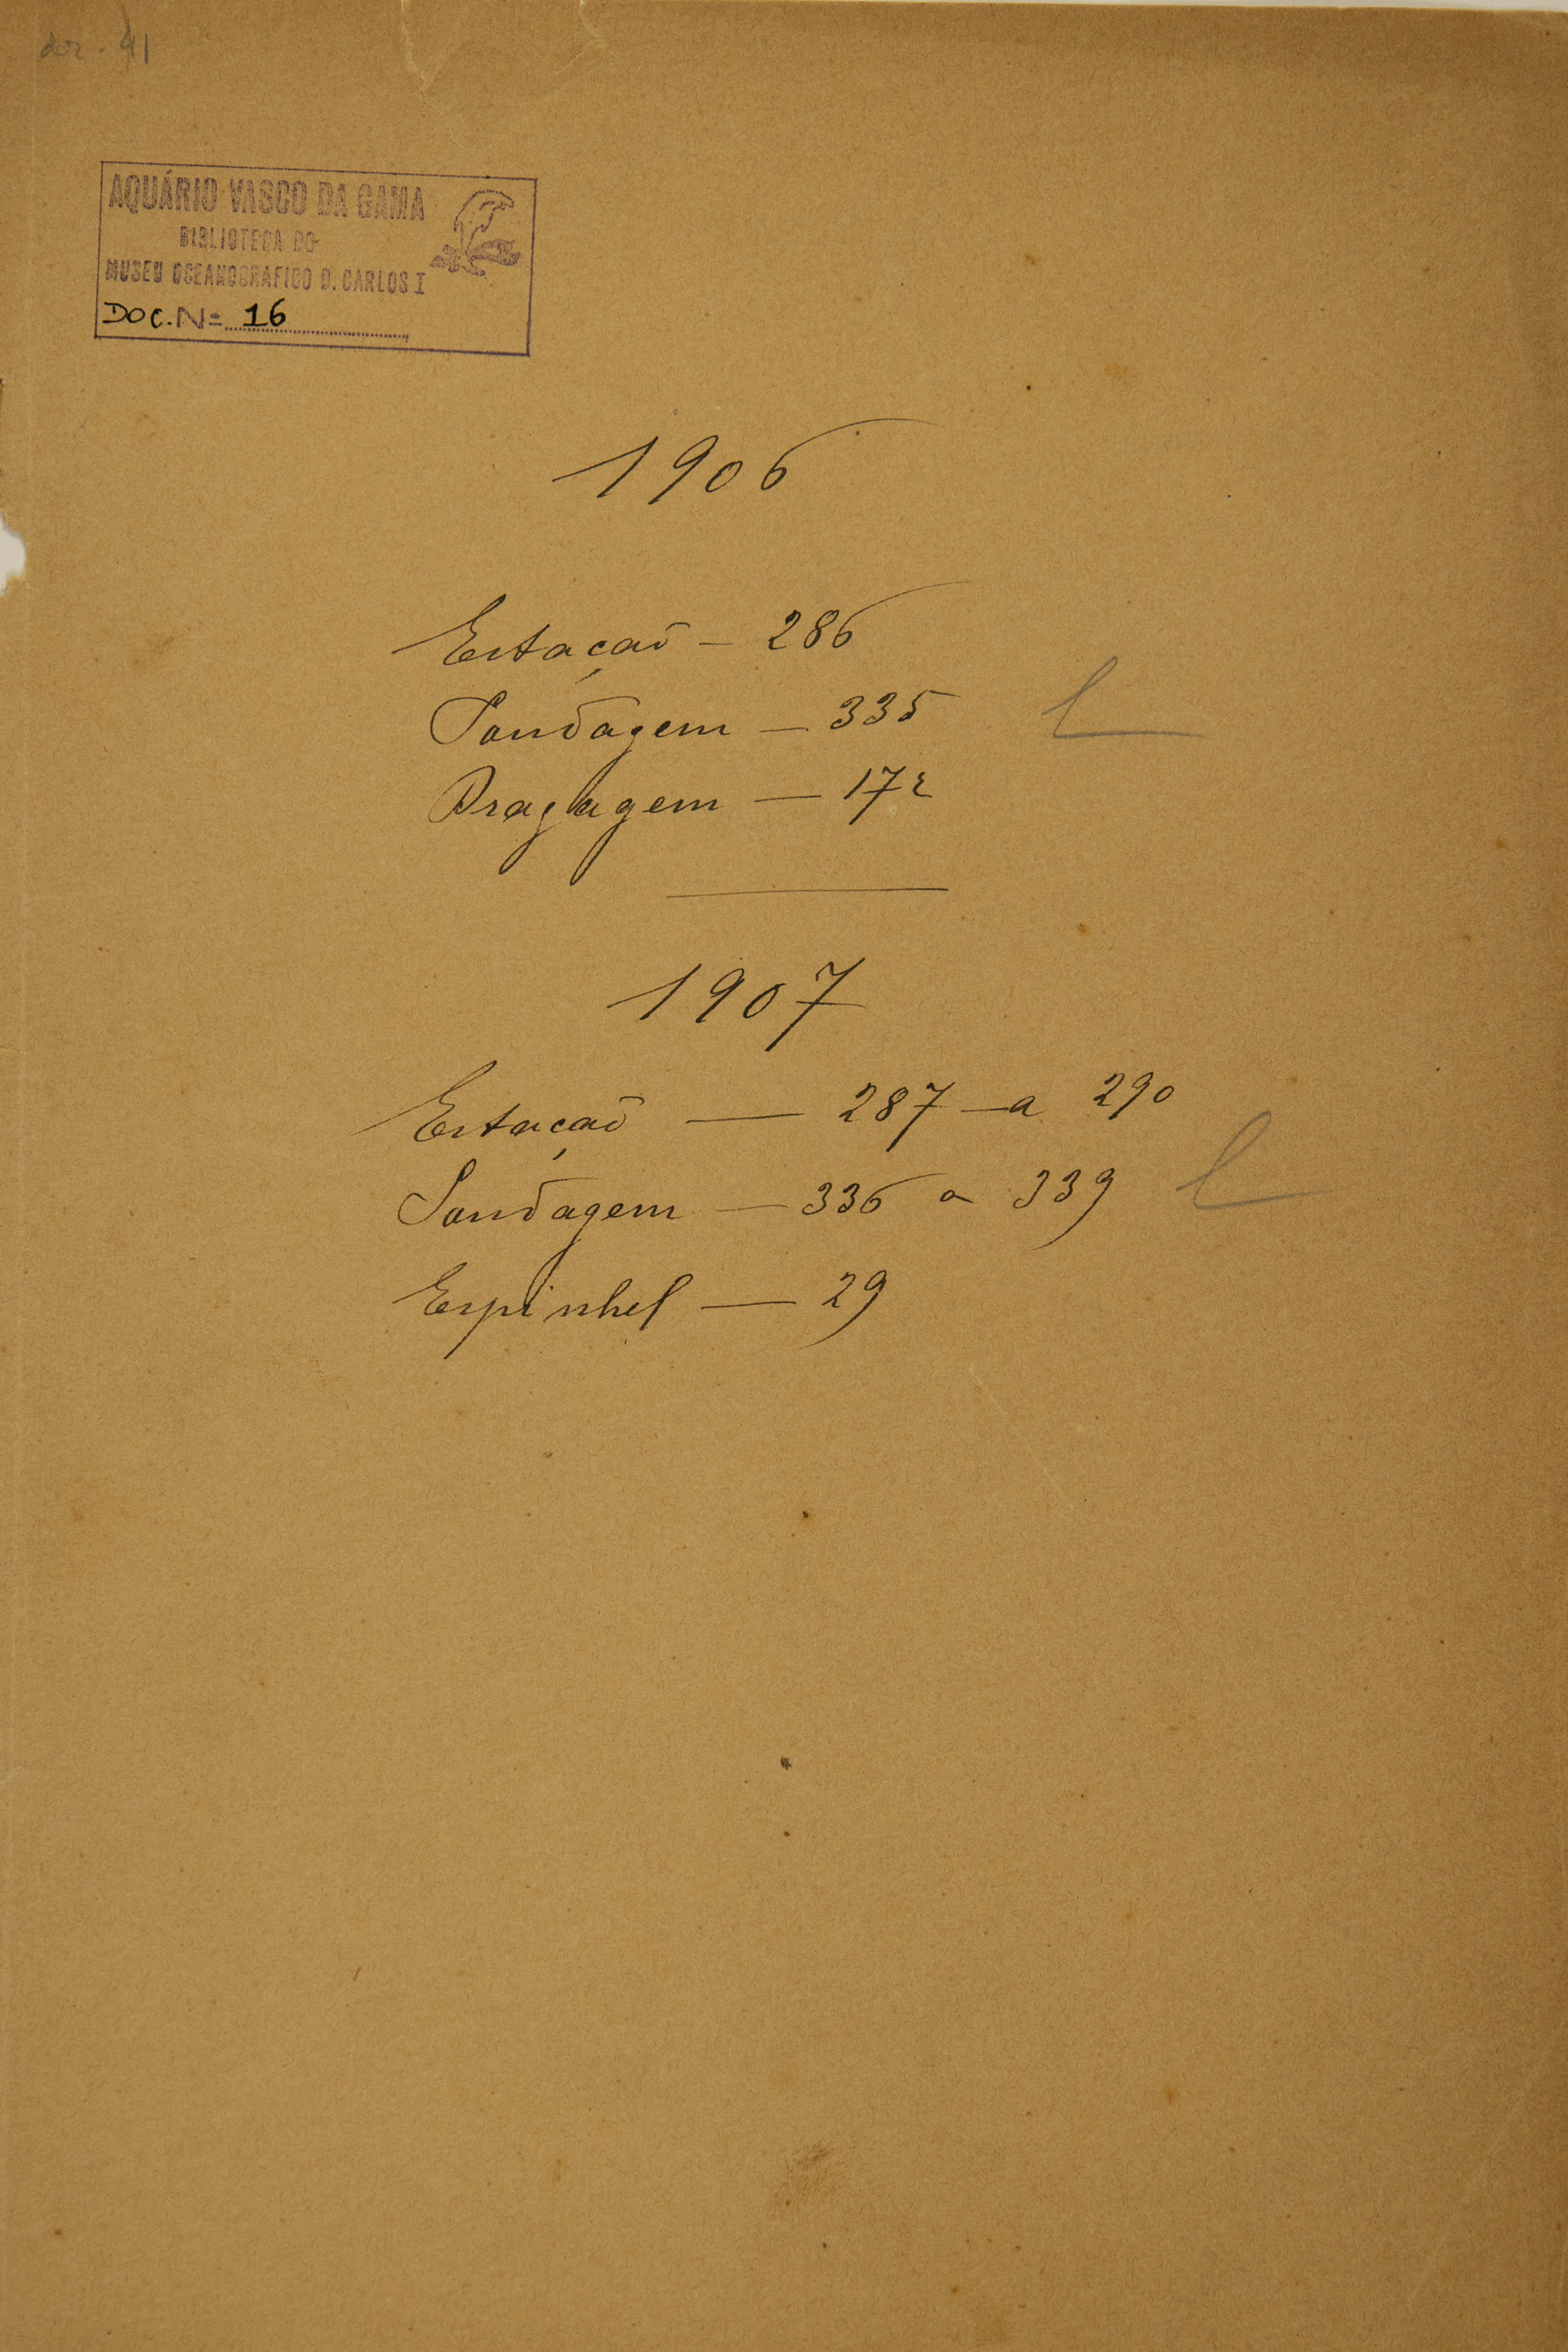 doc. 41
AQUÁRIO VASCO DA GAMA
BIBLIOTECA DO
MUSEU OCEANOGRAFICO D. CARLOS I
DOC. Nº 16
1906
Estação — 286
Sondagem — 335
Dragagem — 172
1907
Estação — 287 — a 290
Sondagem — 336 a 339
Espinhel — 29